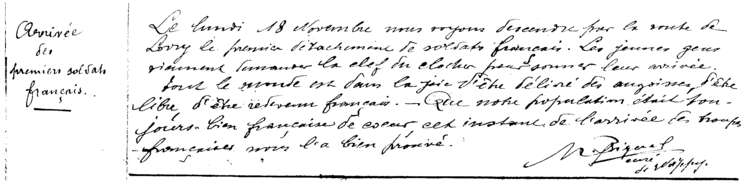 Arrivée
des
premiers soldats
français.
Le lundi 18 Novembre nous voyons descendre par la route de
le premier détachement de soldats français. Les jeunes gens
viennent demander la clef du clocher pour sonner leur arrivée.
Tout le monde est dans la joie d'être délivré des angoisses, d'être
libre, d'être redevenu français. — Que notre population était tou-
jours bien française de coeur, cet instant de l'arrivée des troupes
françaises nous l'a bien prouvé.
curé
de